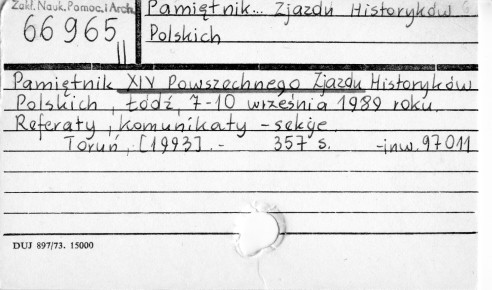 Zakł. Nauk. Pomoc. i Arch.
66965
II
Pamiętnik... Zjazdu Historyków
Polskich
Pamiętnik XIV Powszechnego Zjazdu Historyków
Polskich, Łódź, 7-10 września 1989 roku.
Referaty, komunikaty - sekcje.
Toruń, [1993]. - 357 s. -inw. 97011
DUJ 897/73. 15000